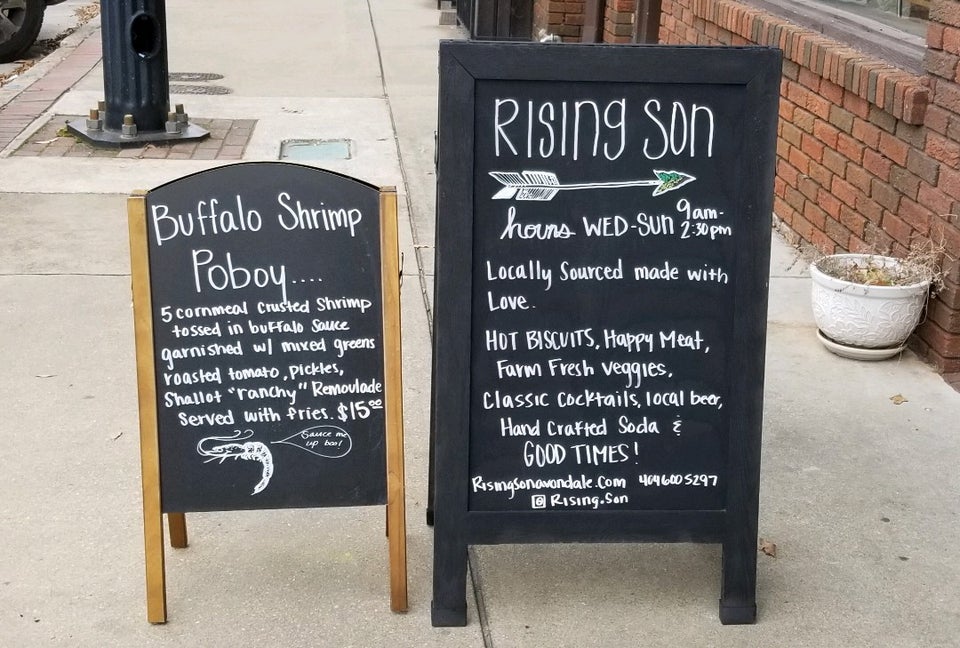 Buffalo Shrimp
Poboy....
5 cornmeal crusted Shrimp
tossed in buffalo Sauce
garnished w/ mixed greens
roasted tomato, pickles,
Shallot "ranchy" Remoulade
Served with fries. $15.00
Sauce me
up boo!
RISING SON
hours WED-SUN 9am-
2:30pm
Locally Sourced made with
Love..
HOT BISCUITS, Happy Meat,
Farm Fresh veggies,
Classic Cocktails, local beer,
Hand Crafted Soda &
GOOD TIMES!
Risingsonavondale.com 4046005297
Rising.Son